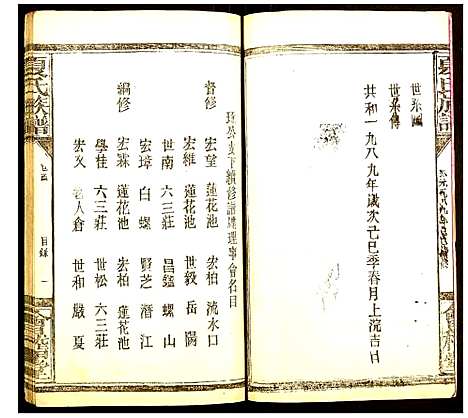 夏氏族譜
世系圖
世系傳
共和一九八九年歲次己巳季春月上浣吉日
督修 宏望 蓮花池 宏柏 流水口
宏維 蓮花池 世毅 岳陽
世南 六三莊 昌鑑 螺山
宏璋 白螺 賢芝 潛江
編修 宏霖 蓮花池 宏柏 蓮花池
學桂 六三莊 世松 六三莊
宏文 老人倉 世和 嚴夏
夏氏族譜
目錄 一
會稽堂